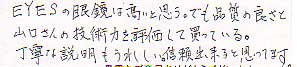 EYESの眼鏡は高いと思う。でも品質の良さと
山口さんの技術力を評価して買っている。
丁寧な説明もうれしい信頼出来ると思ってます